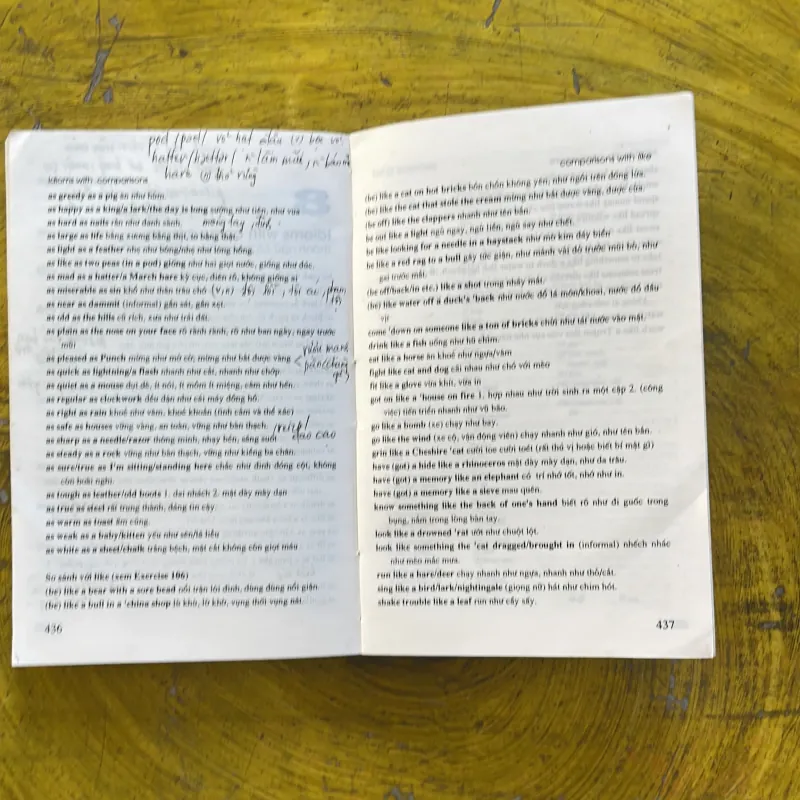 pod /pɒd/ vỏ hạt đậu (v) bóc vỏ
hatter /hætər/
hare (n) thỏ rừng
Idioms with comparisons
as greedy as a pig ăn như hùm.
as happy as a king/a lark/the day is long sướng như tiên, như vua
as hard as nails rắn như đanh sành. móng tay, đinh.
as large as life bằng xương bằng thịt, to bằng thật.
as light as a feather nhẹ như bông/nhẹ như lông hồng.
as like as two peas (in a pod) giống như hai giọt nước, giống như đúc.
as mad as a hatter/a March hare kỳ cục, điên rồ, không giống ai
as miserable as sin khổ như thân trâu chó
as near as dammit (informal) gần sát, gần xịt.
as old as the hills cũ rích, xưa như trái đất.
as plain as the nose on your face rõ rành rành, rõ như ban ngày, ngay trước
mũi
as pleased as Punch mừng như mở cờ, mừng như bắt được vàng
as quick as lightning/a flash nhanh như cắt, nhanh như chớp.
as quiet as a mouse dụt dè, ít nói, ít mồm ít miệng, câm như hến.
as regular as clockwork đều đặn như cái máy đồng hồ.
as right as rain khoẻ như vâm, khoẻ khoắn (tình cảm và thể xác)
as safe as houses vững vàng, an toàn, vững như bàn thạch.
as sharp as a needle/razor thông minh, nhạy bén, sáng suốt dao cạo
as steady as a rock vững như bàn thạch, vững như kiềng ba chân.
as sure/true as I'm sitting/standing here chắc như đinh đóng cột, không
còn hoài nghi.
as tough as leather/old boots 1. dai nhách 2. mặt dày mày dạn
as true as steel rất trung thành, đáng tin cậy.
as warm as toast ấm cúng.
as weak as a baby/kitten yếu như sên/lả liễu
as white as a sheet/chalk trắng bệch, mặt cắt không còn giọt máu
So sánh với like (xem Exercise 106)
(be) like a bear with a sore head nổi trận lôi đình, đùng đùng nổi giận
(be) like a bull in a 'china shop lù khù, lờ khờ, vụng thối vụng nát.
436
comparisons with like
(be) like a cat on hot bricks bồn chồn không yên, như ngồi trên đống lửa.
(be) like the cat that stole the cream mừng như bắt được vàng, được của.
(be off) like the clappers nhanh như tên bắn.
be out like a light ngủ ngay, ngủ liền, ngủ say như chết.
be like looking for a needle in a haystack như mò kim đáy biển
be like a red rag to a bull gây tức giận, như mảnh vải đỏ trước mũi bò, như
gai trước mắt.
(be off/back/in etc.) like a shot trong nháy mắt.
(be) like water off a duck's 'back như nước đổ lá môn/khoai, nước đổ đầu
vịt
come 'down on someone like a ton of bricks chửi như tát nước vào mặt.
drink like a fish uống như hũ chìm.
eat like a horse ăn khoẻ như ngựa/vâm
fight like cat and dog cãi nhau như chó với mèo
fit like a glove vừa khít, vừa in
got on like a 'house on fire 1. hợp nhau như trời sinh ra một cặp 2. (công
việc) tiến triển nhanh như vũ bão.
go like a bomb (xe) chạy như bay.
go like the wind (xe cộ, vận động viên) chạy nhanh như gió, như tên bắn.
grin like a Cheshire 'cat cười toe cười toét (rất thú vị hoặc biết bí mật gì)
have (got) a hide like a rhinoceros mặt dày mày dạn, như da trâu.
have (got) a memory like an elephant có trí nhớ tốt, nhớ như in.
have (got) a memory like a sieve mau quên.
know something like the back of one's hand biết rõ như đi guốc trong
bụng, nắm trong lòng bàn tay.
look like a drowned 'rat ướt như chuột lột.
look like something the 'cat dragged/brought in (informal) nhếch nhác
như mèo mắc mưa.
run like a hare/deer chạy nhanh như ngựa, nhanh như thỏ/cắt.
sing like a bird/lark/nightingale (giọng nữ) hát như chim hót.
shake trouble like a leaf run như cầy sấy.
437